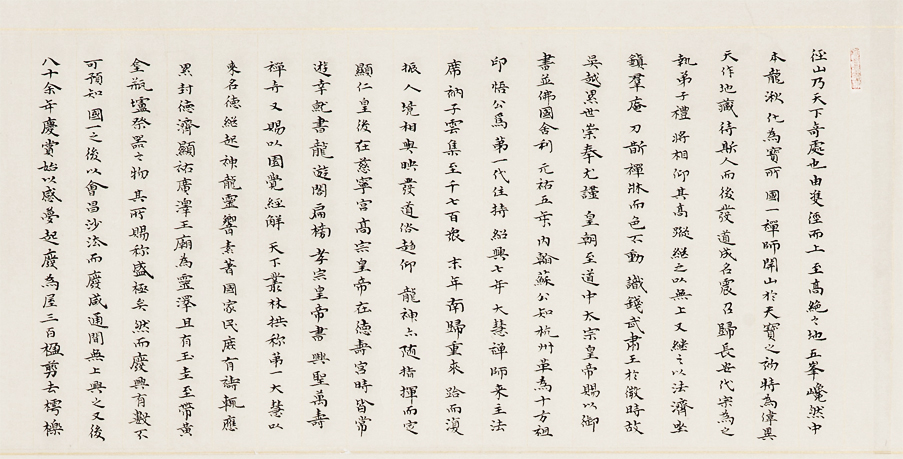 徑山乃天下奇處也由雙徑而上至高絕之地五峯巉然中
本龍湫化為寶所國一禪師開山於天寶之初特為偉異
天作地藏待斯人而後發道成名震召歸長安代宗為之
執弟子禮將相仰其高躅繼之以無上又繼之以法濟坐
鎮羣庵刀斲禪牀而色不動識錢武肅王於微時故
吳越累世崇奉尤謹皇朝至道中太宗皇帝賜以御
書並佛國舍利元祐五年內翰蘇公知杭州革為十方祖
印悟公為第一代住持紹興七年大慧禪師來主法
席衲子雲集至千七百眾末年南歸重來跆而復
振人境相與映發道俗趍仰龍神亦随指揮而定
顯仁皇后在慈寧宮高宗皇帝在德壽宮時皆常
遊幸就書龍遊閣扁榜孝宗皇帝書興聖萬壽
禪寺又賜以圓覺經解天下叢林拱称第一大慧以
來名德继起神龍靈響素著國家民庶有禱輒應
累封德濟顯祐廣澤王廟為靈澤且有玉圭玉帶黃
金瓶爐祭器之物其所賜称盛極矣然而廢興有數不
可預知國一之後以會昌沙汰而廢咸通間無上興之又後
八十余年慶賞始以感夢起廢為屋三百楹剪去樗櫟